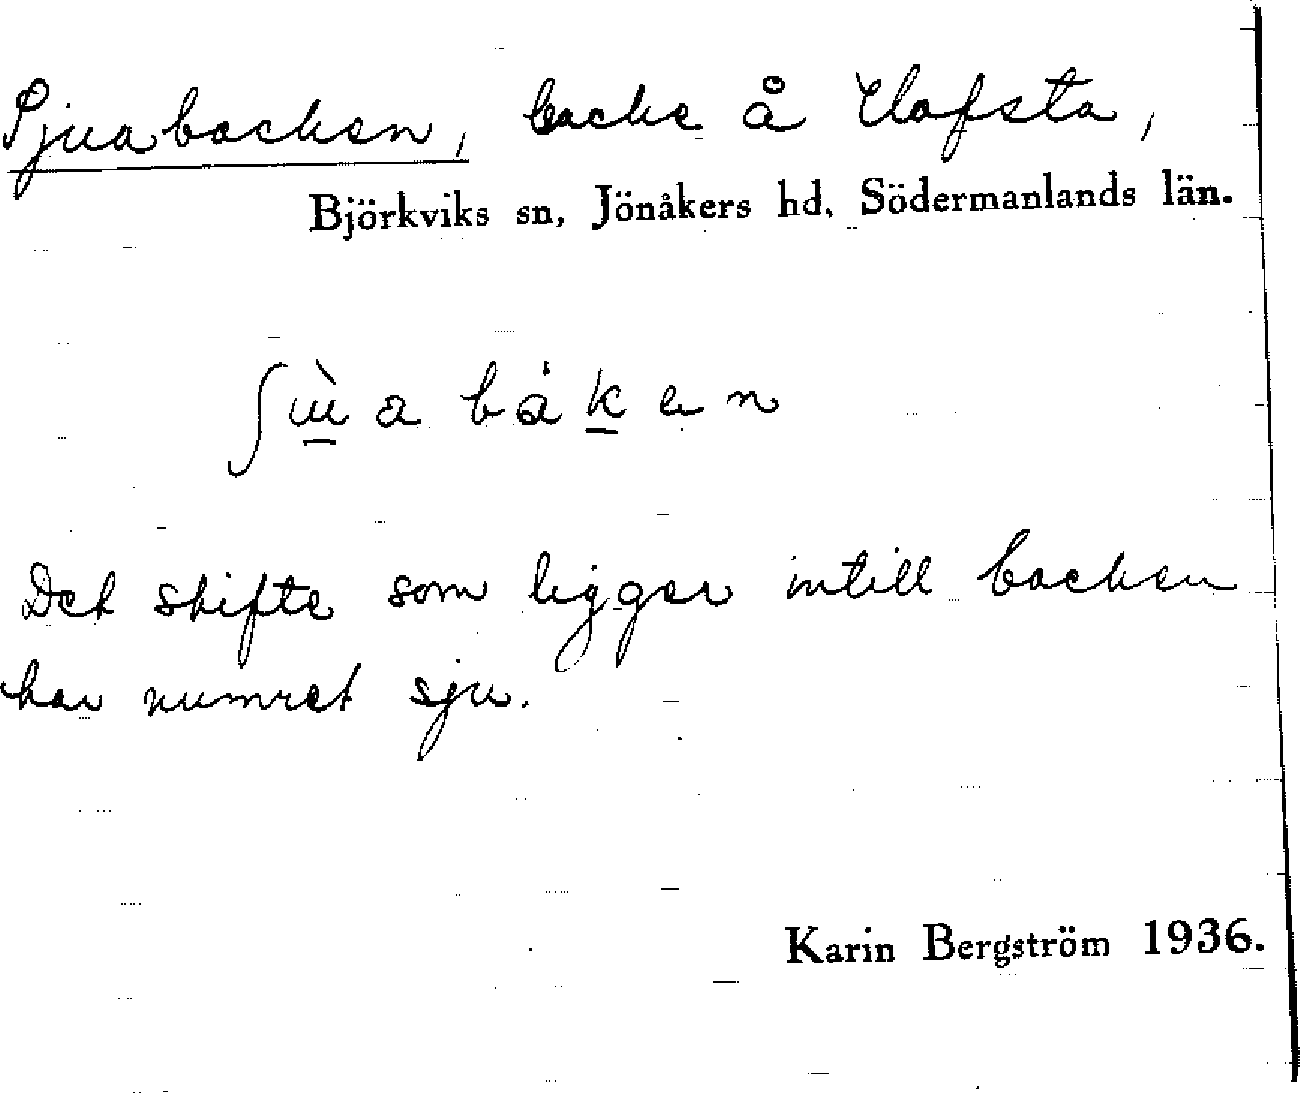 Sjuabacken, backe å Hofsta,
Björkviks sn, Jönåkers hd, Södermanlands län.
ʃɯ̀a båken
Det skifte som ligger intill backen
har numret sju.
Karin Bergström 1936.